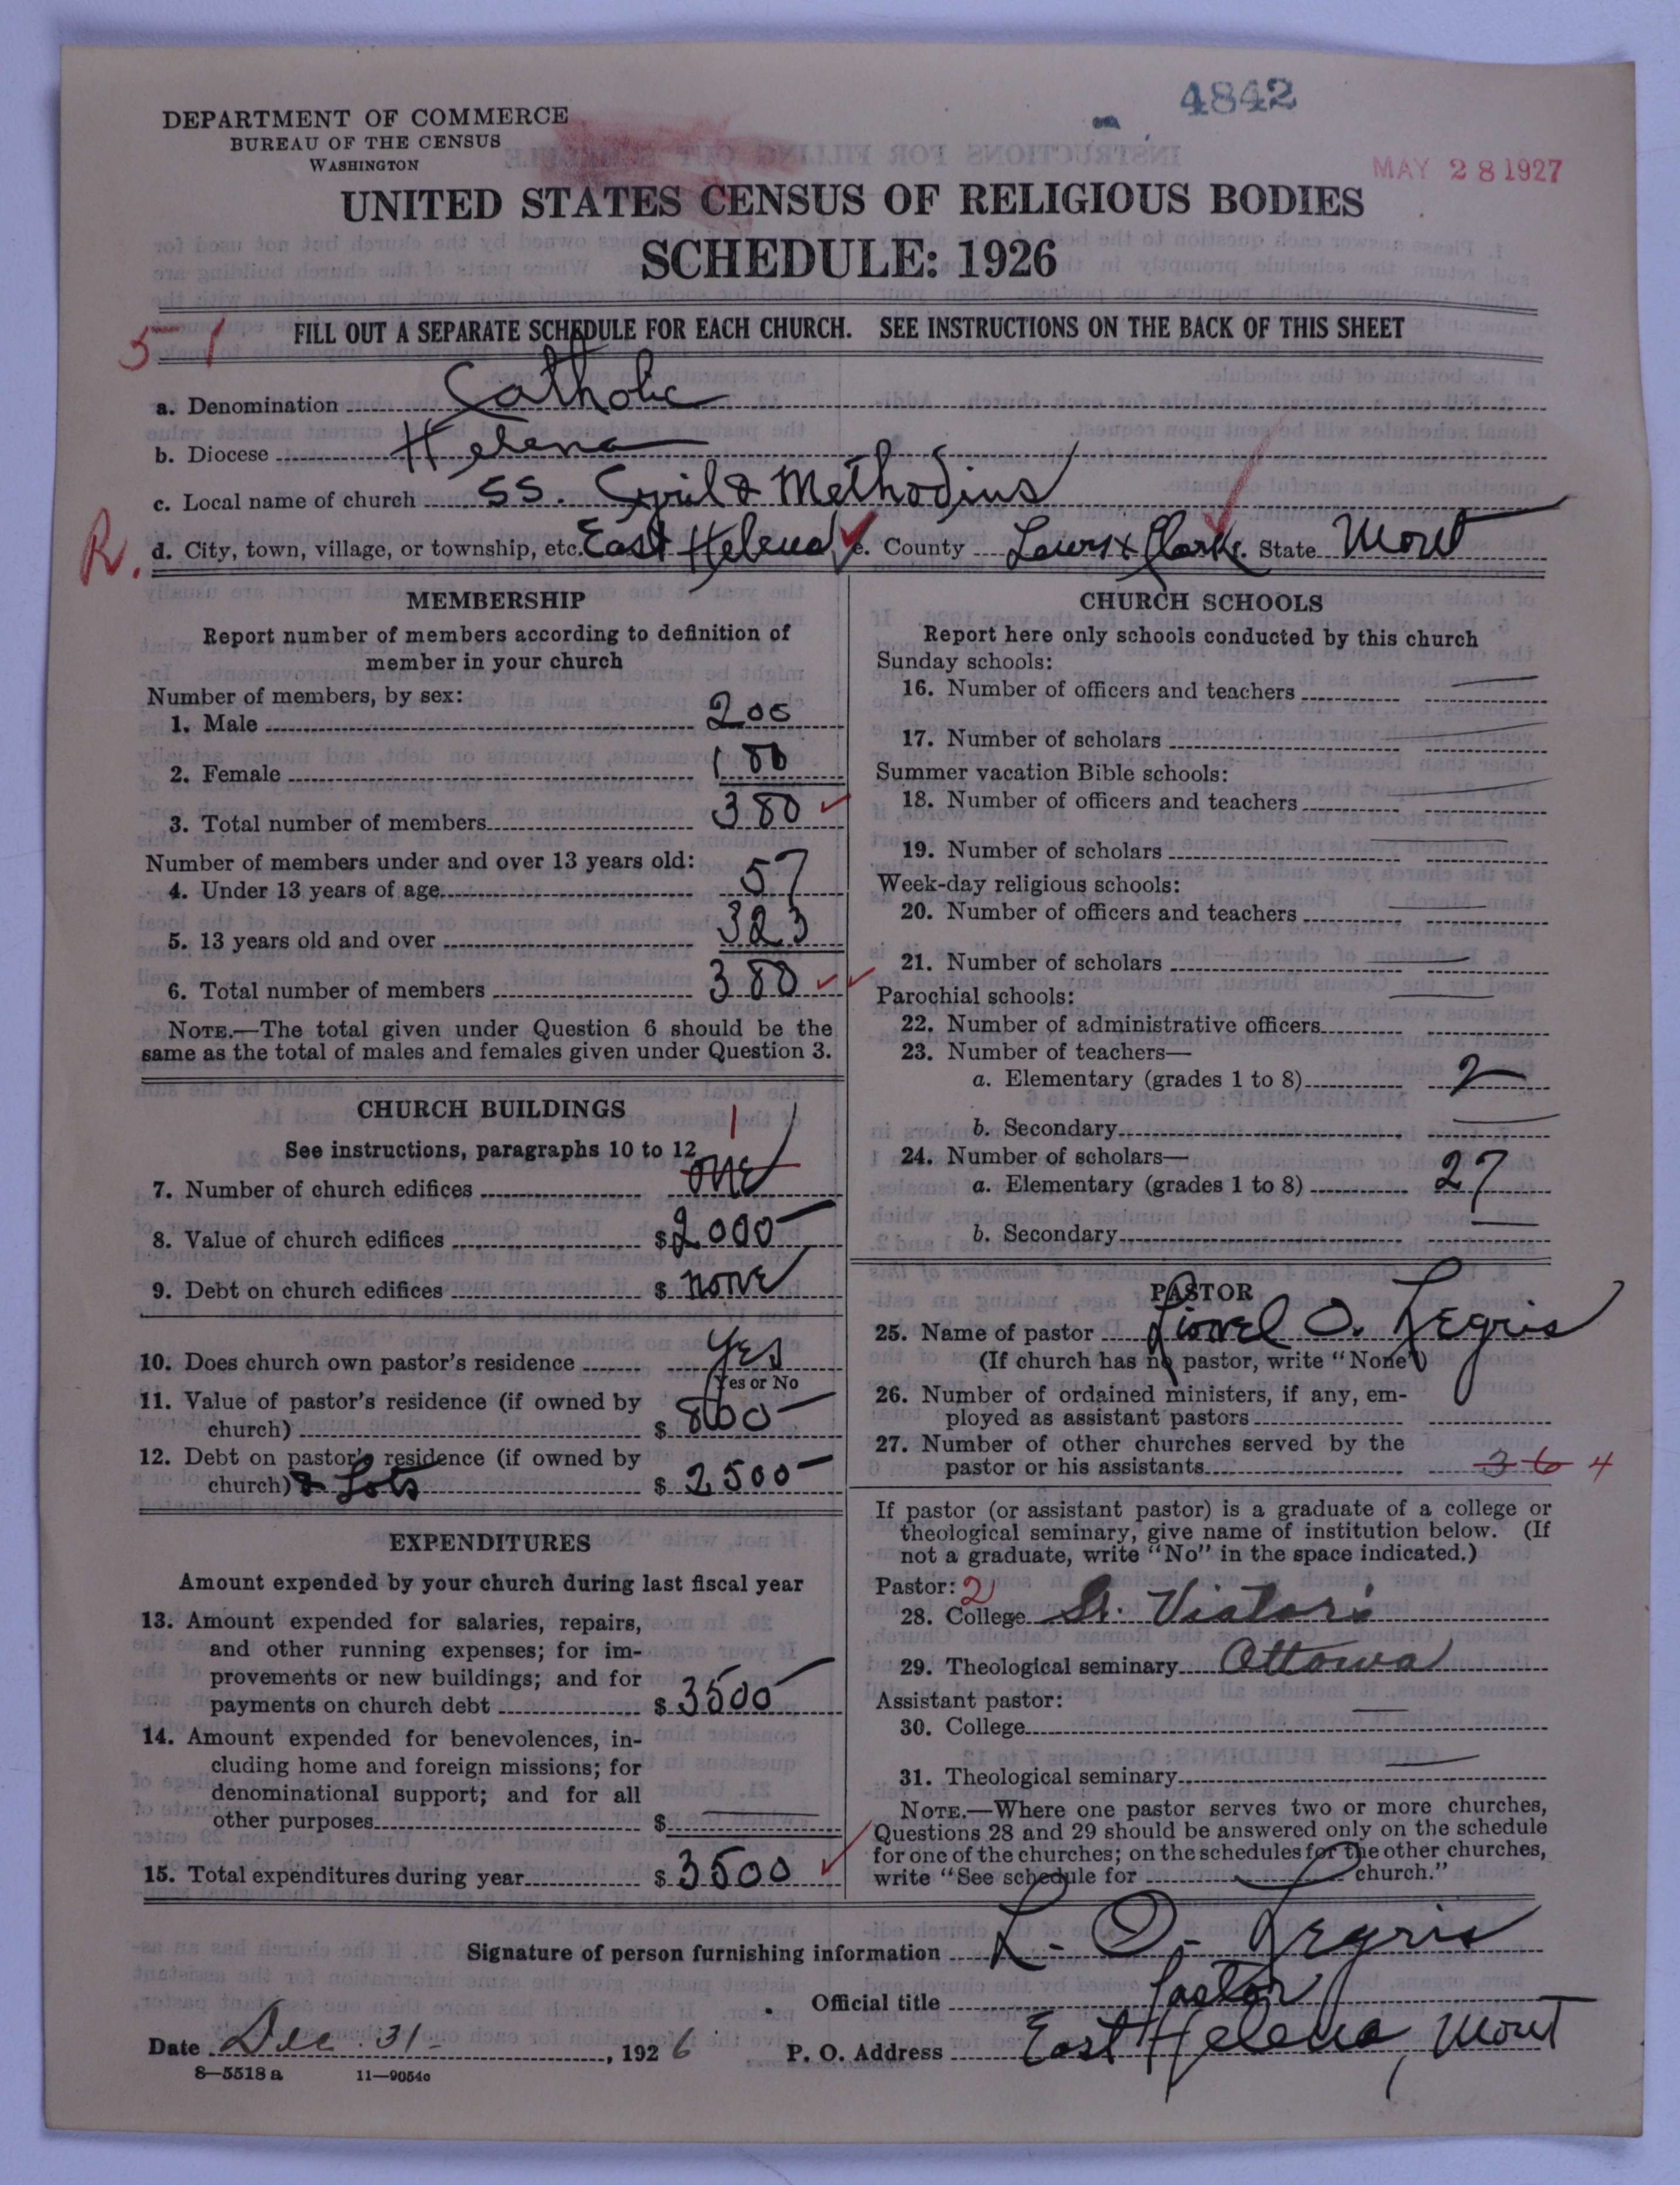 4842
DEPARTMENT OF COMMERCE
BUREAU OF THE CENSUS
WASHINGTON
MAY 28 1927
UNITED STATES CENSUS OF RELIGIOUS BODIES
SCHEDULE: 1926
5 1
FILL OUT A SEPARATE SCHEDULE FOR EACH CHURCH. SEE INSTRUCTIONS ON THE BACK OF THIS SHEET
a. Denomination Catholic
b. Diocese Helena
c. Local name of church SS. Cyril & Methodius
R. d. City, town, village, or township, etc. East Helena e. County Lewis & Clark. State Mont
MEMBERSHIP
Report number of members according to definition of
member in your church
Number of members, by sex:
1. Male 200
2. Female 180
3. Total number of members 380
Number of members under and over 13 years old:
4. Under 13 years of age 57
5. 13 years old and over 323
6. Total number of members 380
NOTE.—The total given under Question 6 should be the
same as the total of males and females given under Question 3.
CHURCH BUILDINGS
See instructions, paragraphs 10 to 12
1
7. Number of church edifices one
8. Value of church edifices $ 2000
9. Debt on church edifices $ none
10. Does church own pastor's residence yes
Yes or No
11. Value of pastor's residence (if owned by
church) $ 800
12. Debt on pastor's residence (if owned by
church) & Lots $ 2500
EXPENDITURES
Amount expended by your church during last fiscal year
13. Amount expended for salaries, repairs,
and other running expenses; for im-
provements or new buildings; and for
payments on church debt $ 3500
14. Amount expended for benevolences, in-
cluding home and foreign missions; for
denominational support; and for all
other purposes $
15. Total expenditures during year $ 3500
CHURCH SCHOOLS
Report here only schools conducted by this church
Sunday schools:
16. Number of officers and teachers
17. Number of scholars
Summer vacation Bible schools:
18. Number of officers and teachers
19. Number of scholars
Week-day religious schools:
20. Number of officers and teachers
21. Number of scholars
Parochial schools:
22. Number of administrative officers
23. Number of teachers—
a. Elementary (grades 1 to 8) 2
b. Secondary
24. Number of scholars—
a. Elementary (grades 1 to 8) 27
b. Secondary
PASTOR
25. Name of pastor Lionel O. Legris
(If church has no pastor, write "None")
26. Number of ordained ministers, if any, em-
ployed as assistant pastors
27. Number of other churches served by the
pastor or his assistants 3 6 4
If pastor (or assistant pastor) is a graduate of a college or
theological seminary, give name of institution below. (If
not a graduate, write "No" in the space indicated.)
Pastor: 2
28. College St. Viator's
29. Theological seminary Ottowa
Assistant pastor:
30. College
31. Theological seminary
NOTE.—Where one pastor serves two or more churches,
Questions 28 and 29 should be answered only on the schedule
for one of the churches; on the schedules for the other churches,
write "See schedule for church."
Signature of person furnishing information L. O. Legris
Official title Pastor
Date Dec. 31, 1926 P. O. Address East Helena, Mont
8—5518 a 11—9054c